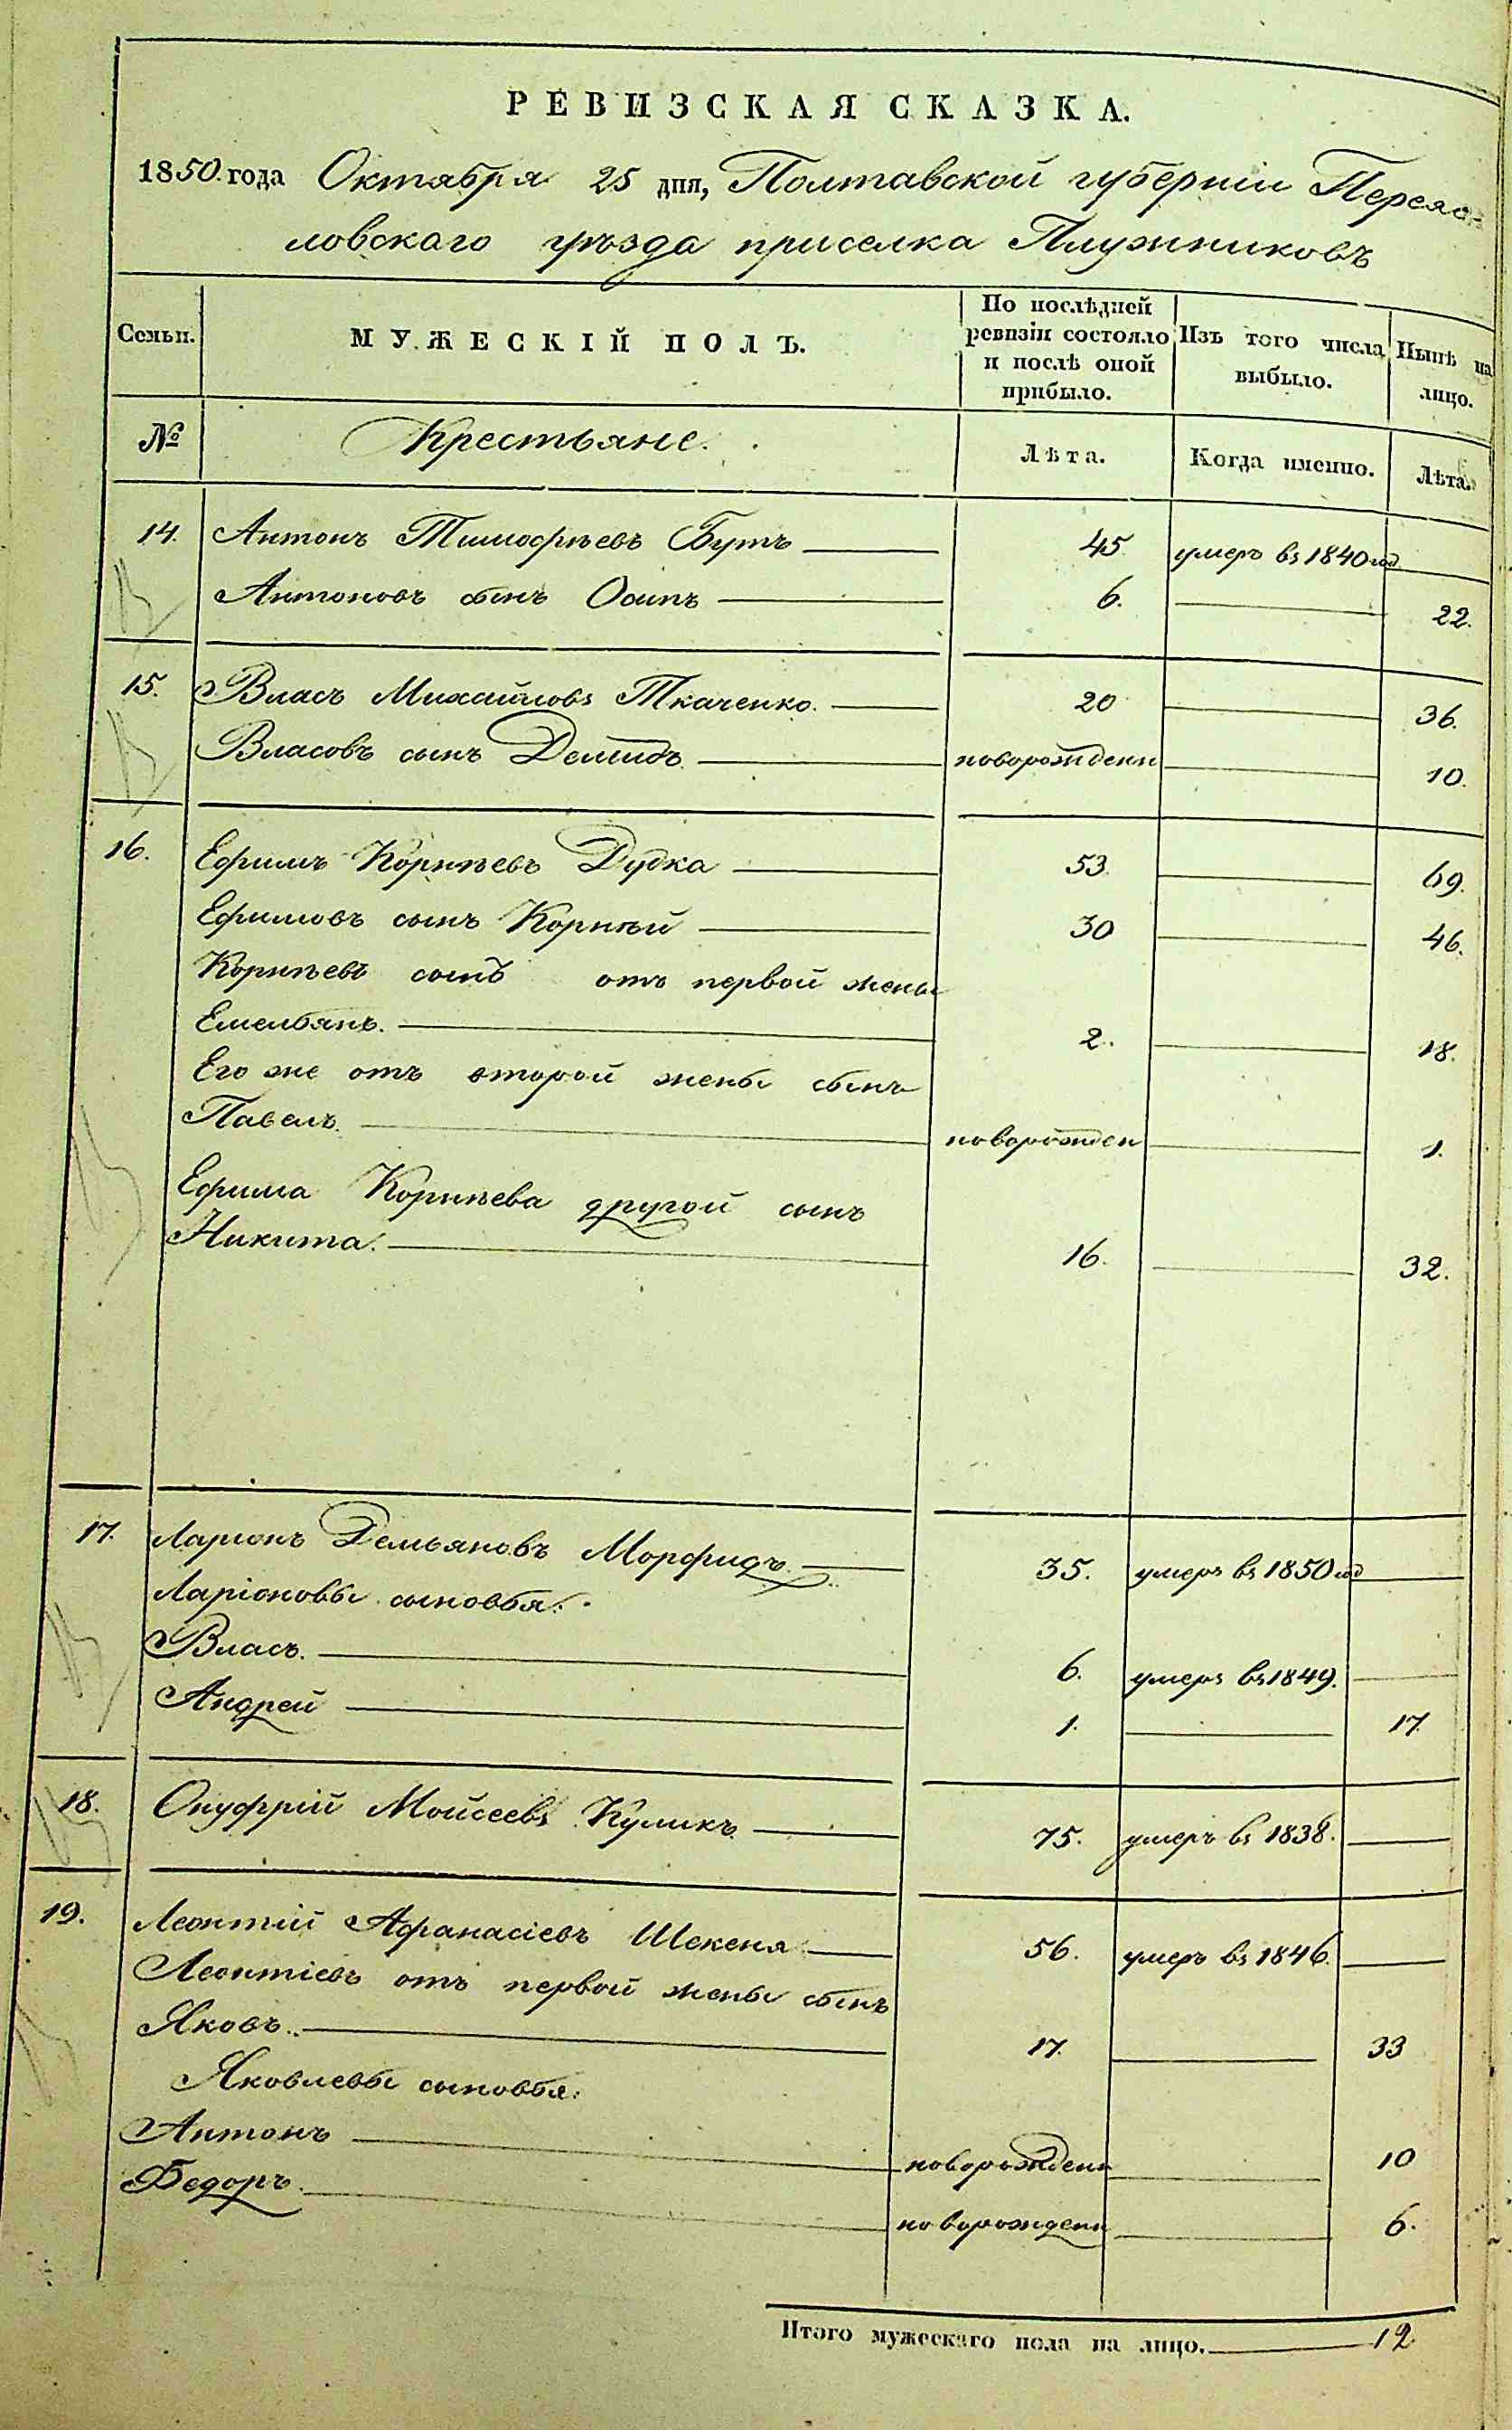 РЕВИЗСКАЯ СКАЗКА.
1850 года Октября 25 дня, Полтавской губерніи Переяс-
ловскаго уѣзда приселка Плужниковъ
Семьи. МУЖЕСКІЙ ПОЛЪ. По послѣдней ревизіи состояло и послѣ оной прибыло. Изъ того числа выбыло. Нынѣ на лицо.
№ Крестьяне. Лѣта. Когда именно. Лѣта.
14. Антонъ Тимофѣевъ Бутъ 45 умеръ въ 1840 год
Антоновъ сынъ Осипъ 6. 22.
15. Власъ Михайловъ Ткаченко. 20 36.
Власовъ сынъ Демидъ новорожденн 10.
16. Ефимъ Корнѣевъ Дудка 53. 69.
Ефимовъ сынъ Корнѣй 30 46.
Корнѣевъ сынъ отъ первой жены
Емельянъ. 2. 18.
Его же отъ второй жены сынъ
Павелъ. новорожден 1.
Ефима Корнѣева другой сынъ
Никита. 16. 32.
17. Ларіонъ Демьяновъ Морфидъ. 35. умеръ въ 1850 год
Ларіоновы сыновья:
Власъ. 6. умеръ въ 1849.
Андрей 1. 17.
18. Онуфрій Мойсеевъ Куликъ. 75. умеръ въ 1838.
19. Леонтій Афанасіевъ Шекеня 56. умеръ въ 1846.
Леонтіевъ отъ первой жены сынъ
Яковъ. 17. 33
Яковлевы сыновья:
Антонъ новорожденн 10
Федоръ. новорожденн 6.
Итого мужескаго пола на лицо. 12